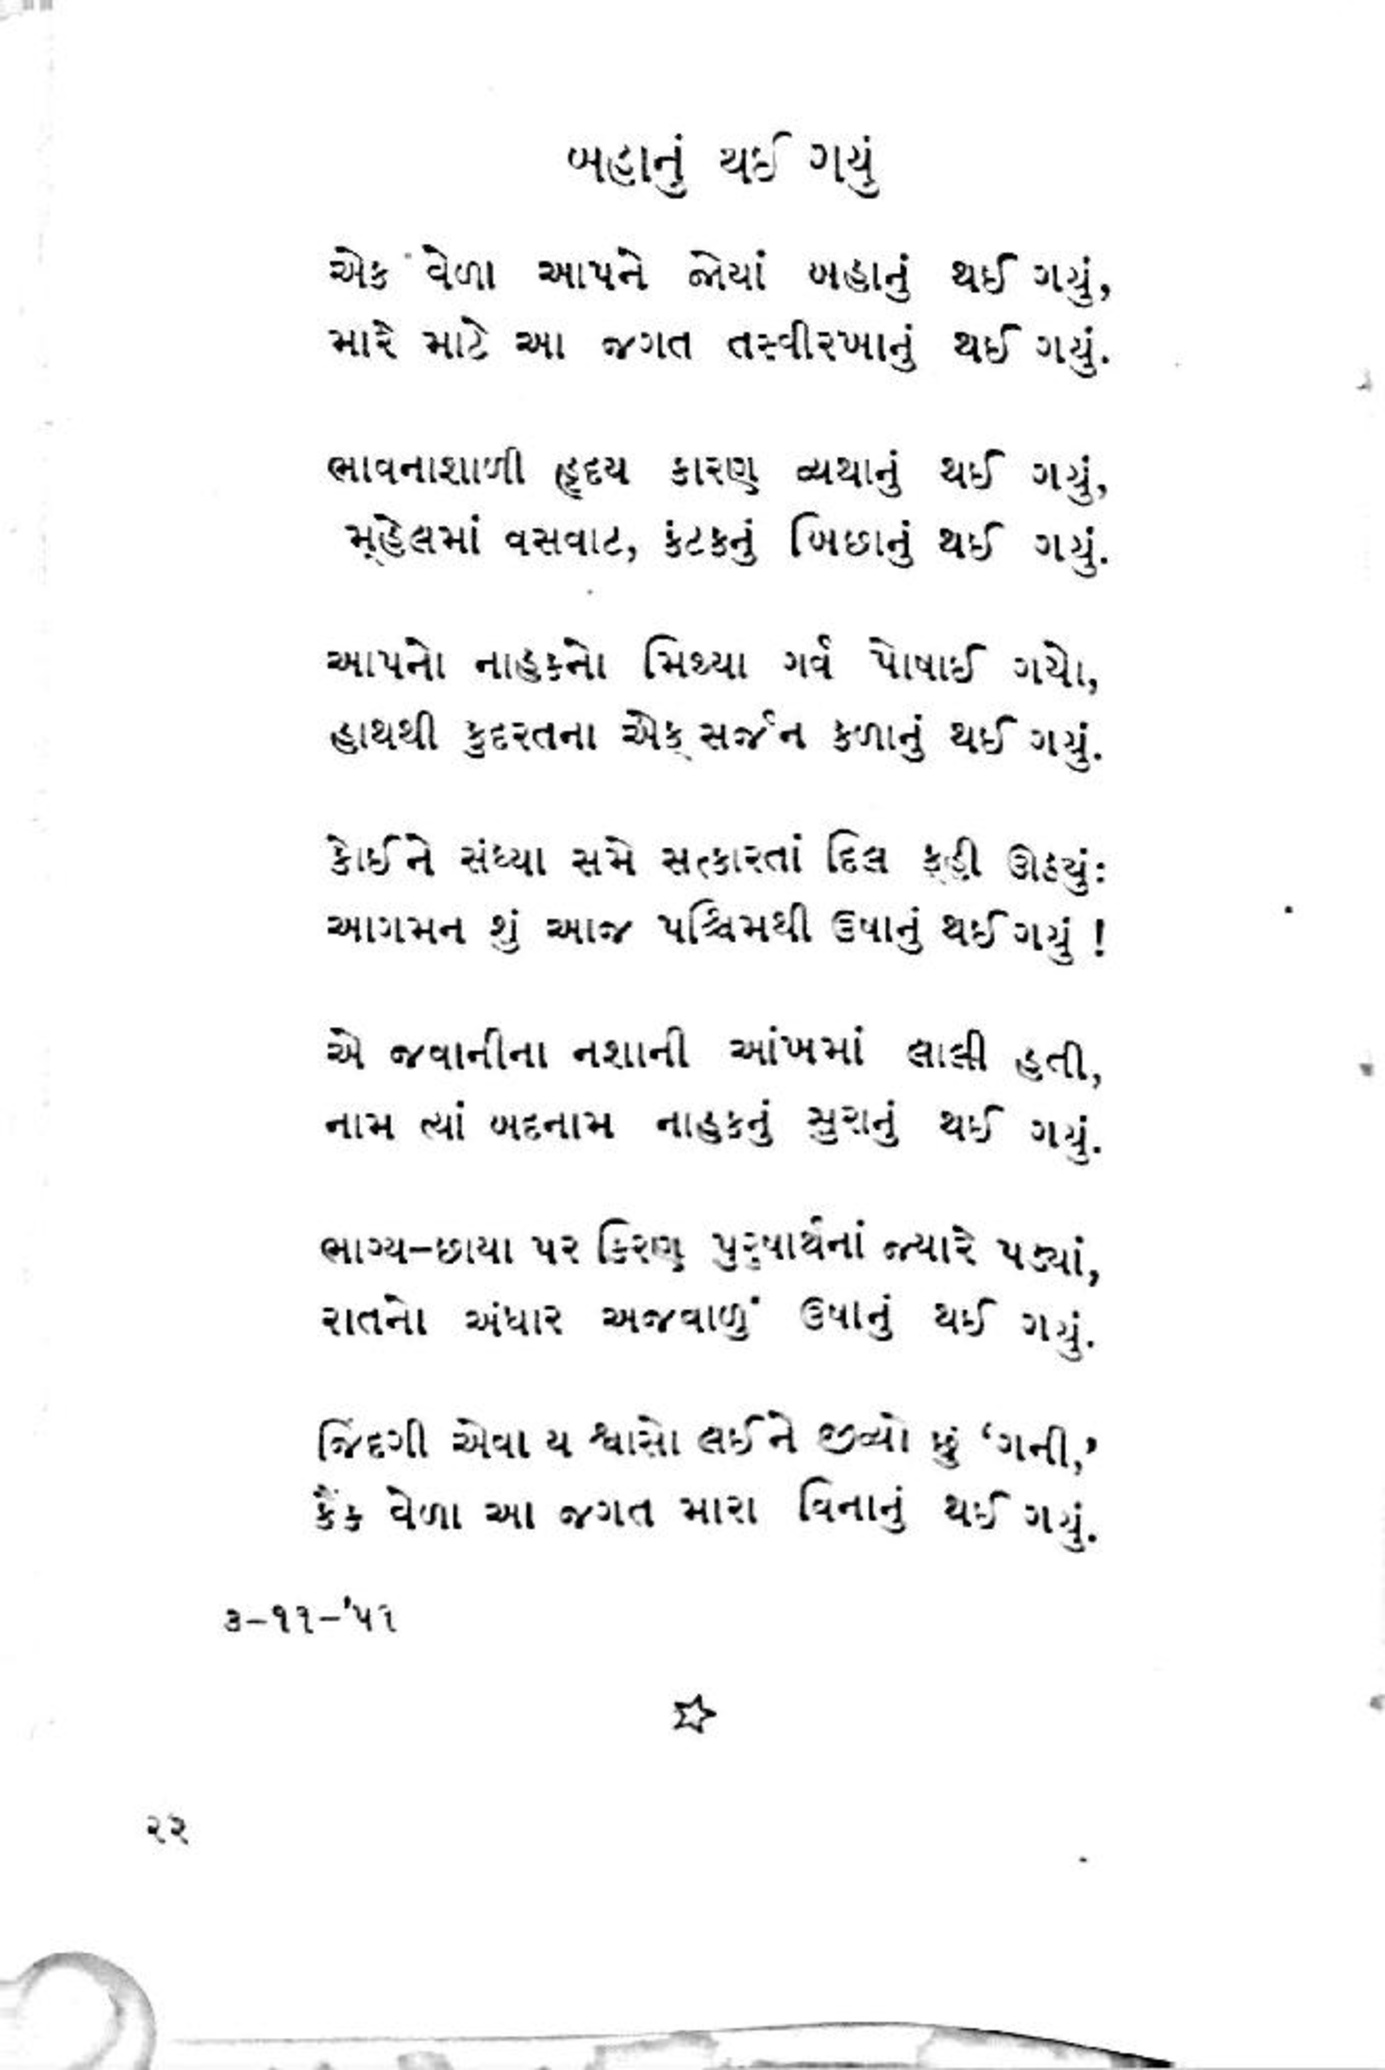 બહાનું થઈ ગયું
એક વેળા આપને જોયાં બહાનું થઈ ગયું,
મારે માટે આ જગત તસ્વીરખાનું થઈ ગયું.
ભાવનાશાળી હૃદય કારણ વ્યથાનું થઈ ગયું,
મ્હેલમાં વસવાટ, કંટકનું બિછાનું થઈ ગયું.
આપનો નાહકનો મિથ્યા ગર્વ પોષાઈ ગયો,
હાથથી કુદરતના એક્ સર્જન કળાનું થઈ ગયું.
કોઈને સંધ્યા સમે સત્કારતાં દિલ કહી ઊઠયુંઃ
આગમન શું આજ પશ્ચિમથી ઉષાનું થઈ ગયું !
એ જવાનીના નશાની આંખમાં લાલી હતી,
નામ ત્યાં બદનામ નાહકનું સુરાનું થઈ ગયું.
ભાગ્ય-છાયા પર કિરણ પુરુષાર્થનાં જ્યારે પડ્યાં,
રાતનો અંધાર અજવાળું ઉષાનું થઈ ગયું.
જિંદગી એવા ય શ્વાસો લઈને જીવ્યો છું ‘ગની,’
કૈંક વેળા આ જગત મારા વિનાનું થઈ ગયું.
૩-૧૧-'૫૧
૨૨